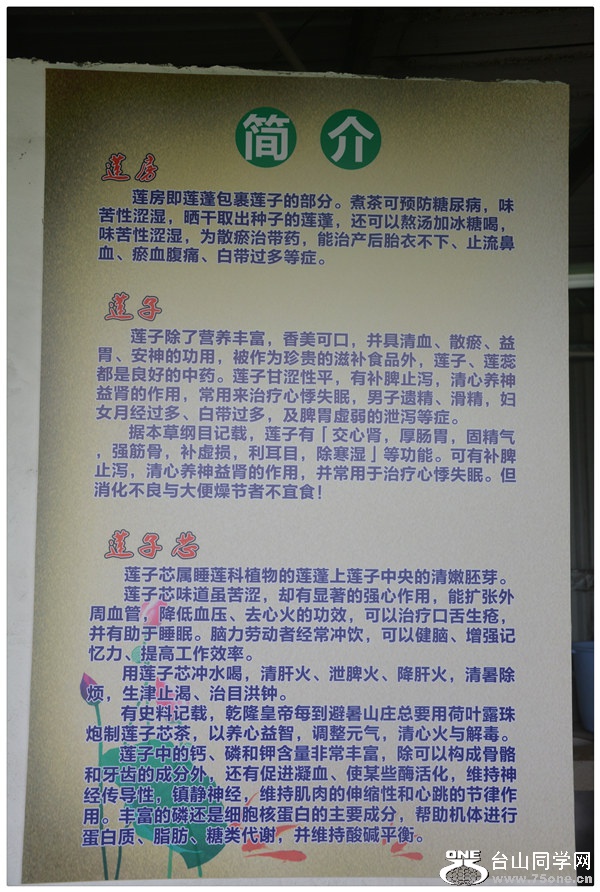 简介
莲房
莲房即莲蓬包裹莲子的部分。煮茶可预防糖尿病，味
苦性涩湿，晒干取出种子的莲蓬，还可以熬汤加冰糖喝，
味苦性涩湿，为散瘀治带药，能治产后胎衣不下、止流鼻
血、瘀血腹痛、白带过多等症。
莲子
莲子除了营养丰富，香美可口，并具清血、散瘀、益
胃、安神的功用，被作为珍贵的滋补食品外，莲子、莲蕊
都是良好的中药。莲子甘涩性平，有补脾止泻，清心养神
益肾的作用，常用来治疗心悸失眠，男子遗精、滑精，妇
女月经过多、白带过多，及脾胃虚弱的泄泻等症。
据本草纲目记载，莲子有「交心肾，厚肠胃，固精气
，强筋骨，补虚损，利耳目，除寒湿」等功能。可有补脾
止泻，清心养神益肾的作用，并常用于治疗心悸失眠。但
消化不良与大便燥节者不宜食！
莲子芯
莲子芯属睡莲科植物的莲蓬上莲子中央的清嫩胚芽。
莲子芯味道虽苦涩，却有显著的强心作用，能扩张外
周血管，降低血压、去心火的功效，可以治疗口舌生疮，
并有助于睡眠。脑力劳动者经常冲饮，可以健脑、增强记
忆力、提高工作效率。
用莲子芯冲水喝，清肝火、泄脾火、降肝火，清暑除
烦，生津止渴、治目洪钟。
有史料记载，乾隆皇帝每到避暑山庄总要用荷叶露珠
炮制莲子芯茶，以养心益智，调整元气，清心火与解毒。
莲子中的钙、磷和钾含量非常丰富，除可以构成骨骼
和牙齿的成分外，还有促进凝血、使某些酶活化，维持神
经传导性，镇静神经，维持肌肉的伸缩性和心跳的节律作
用。丰富的磷还是细胞核蛋白的主要成分，帮助机体进行
蛋白质、脂肪、糖类代谢，并维持酸碱平衡。
ONE 台山同学网
www.75one.cn